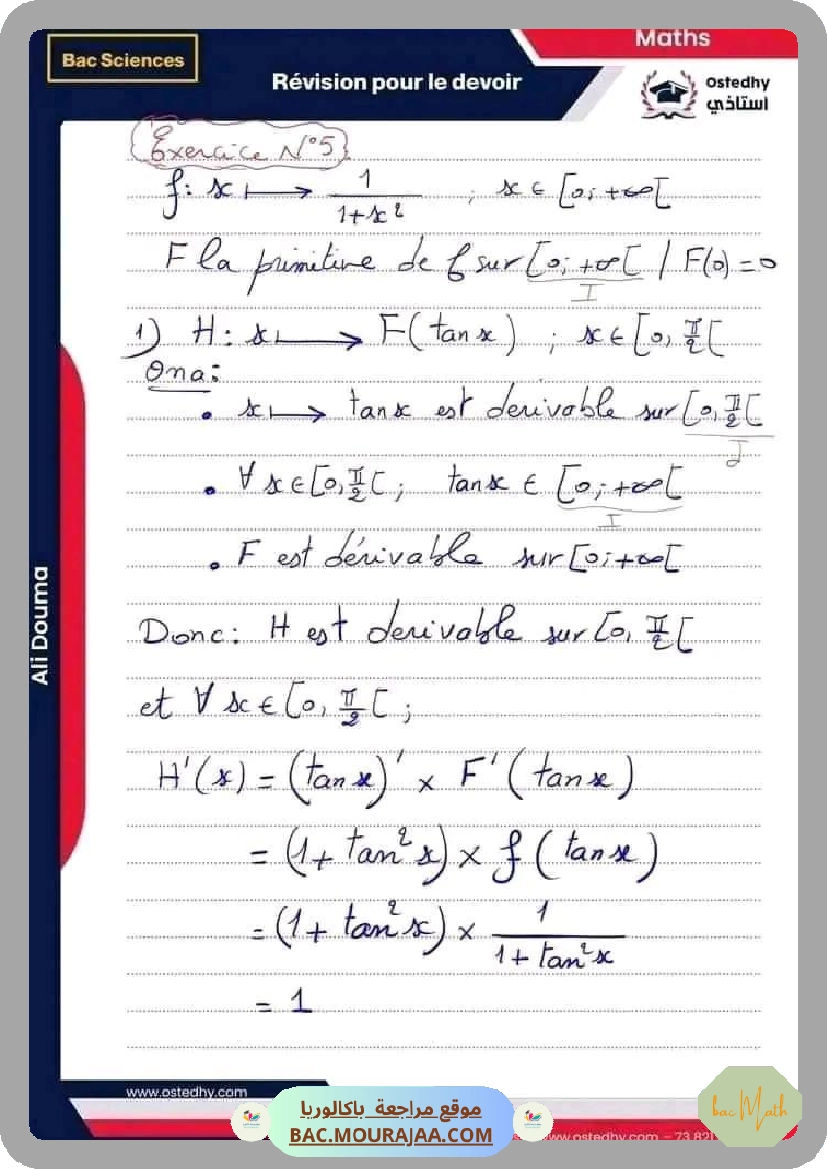 Maths
Bac Sciences
Révision pour le devoir
Ostedhy
استاذي
Exercice N°5
f: x ⟼ 1/(1+x²) ; x ∈ [0; +∞[
F la primitive de f sur [0; +∞[ / F(0) = 0
I
1) H: x ⟼ F(tan x) ; x ∈ [0, π/2[
Ona:
• x ⟼ tanx est derivable sur [0, π/2[
J
• ∀ x ∈ [0, π/2[ ; tanx ∈ [0; +∞[
I
• F est dérivable sur [0; +∞[
Donc: H est derivable sur [0, π/2[
et ∀ x ∈ [0, π/2[ ;
H'(x) = (tan x)' × F'(tan x)
= (1 + tan² x) × f(tan x)
= (1 + tan² x) × 1/(1 + tan² x)
= 1
Ali Douma
www.ostedhy.com
موقع مراجعة باكالوريا
BAC.MOURAJAA.COM
bac Math
www.ostedhy.com – 73.821